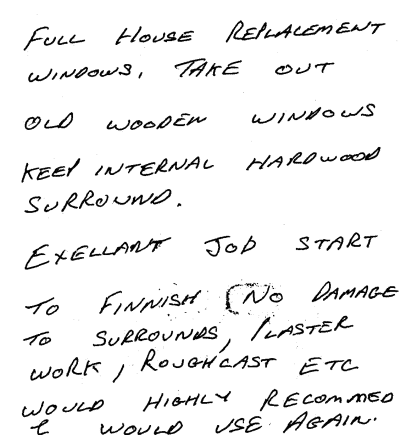 FULL HOUSE REPLACEMENT
WINDOWS. TAKE OUT
OLD WOODEN WINDOWS
KEEP INTERNAL HARDWOOD
SURROUND.
EXELLANT JOB START
TO FINNISH (NO DAMAGE
TO SURROUNDS, PLASTER
WORK, ROUGHCAST ETC
WOULD HIGHLY RECOMMED
& WOULD USE AGAIN.